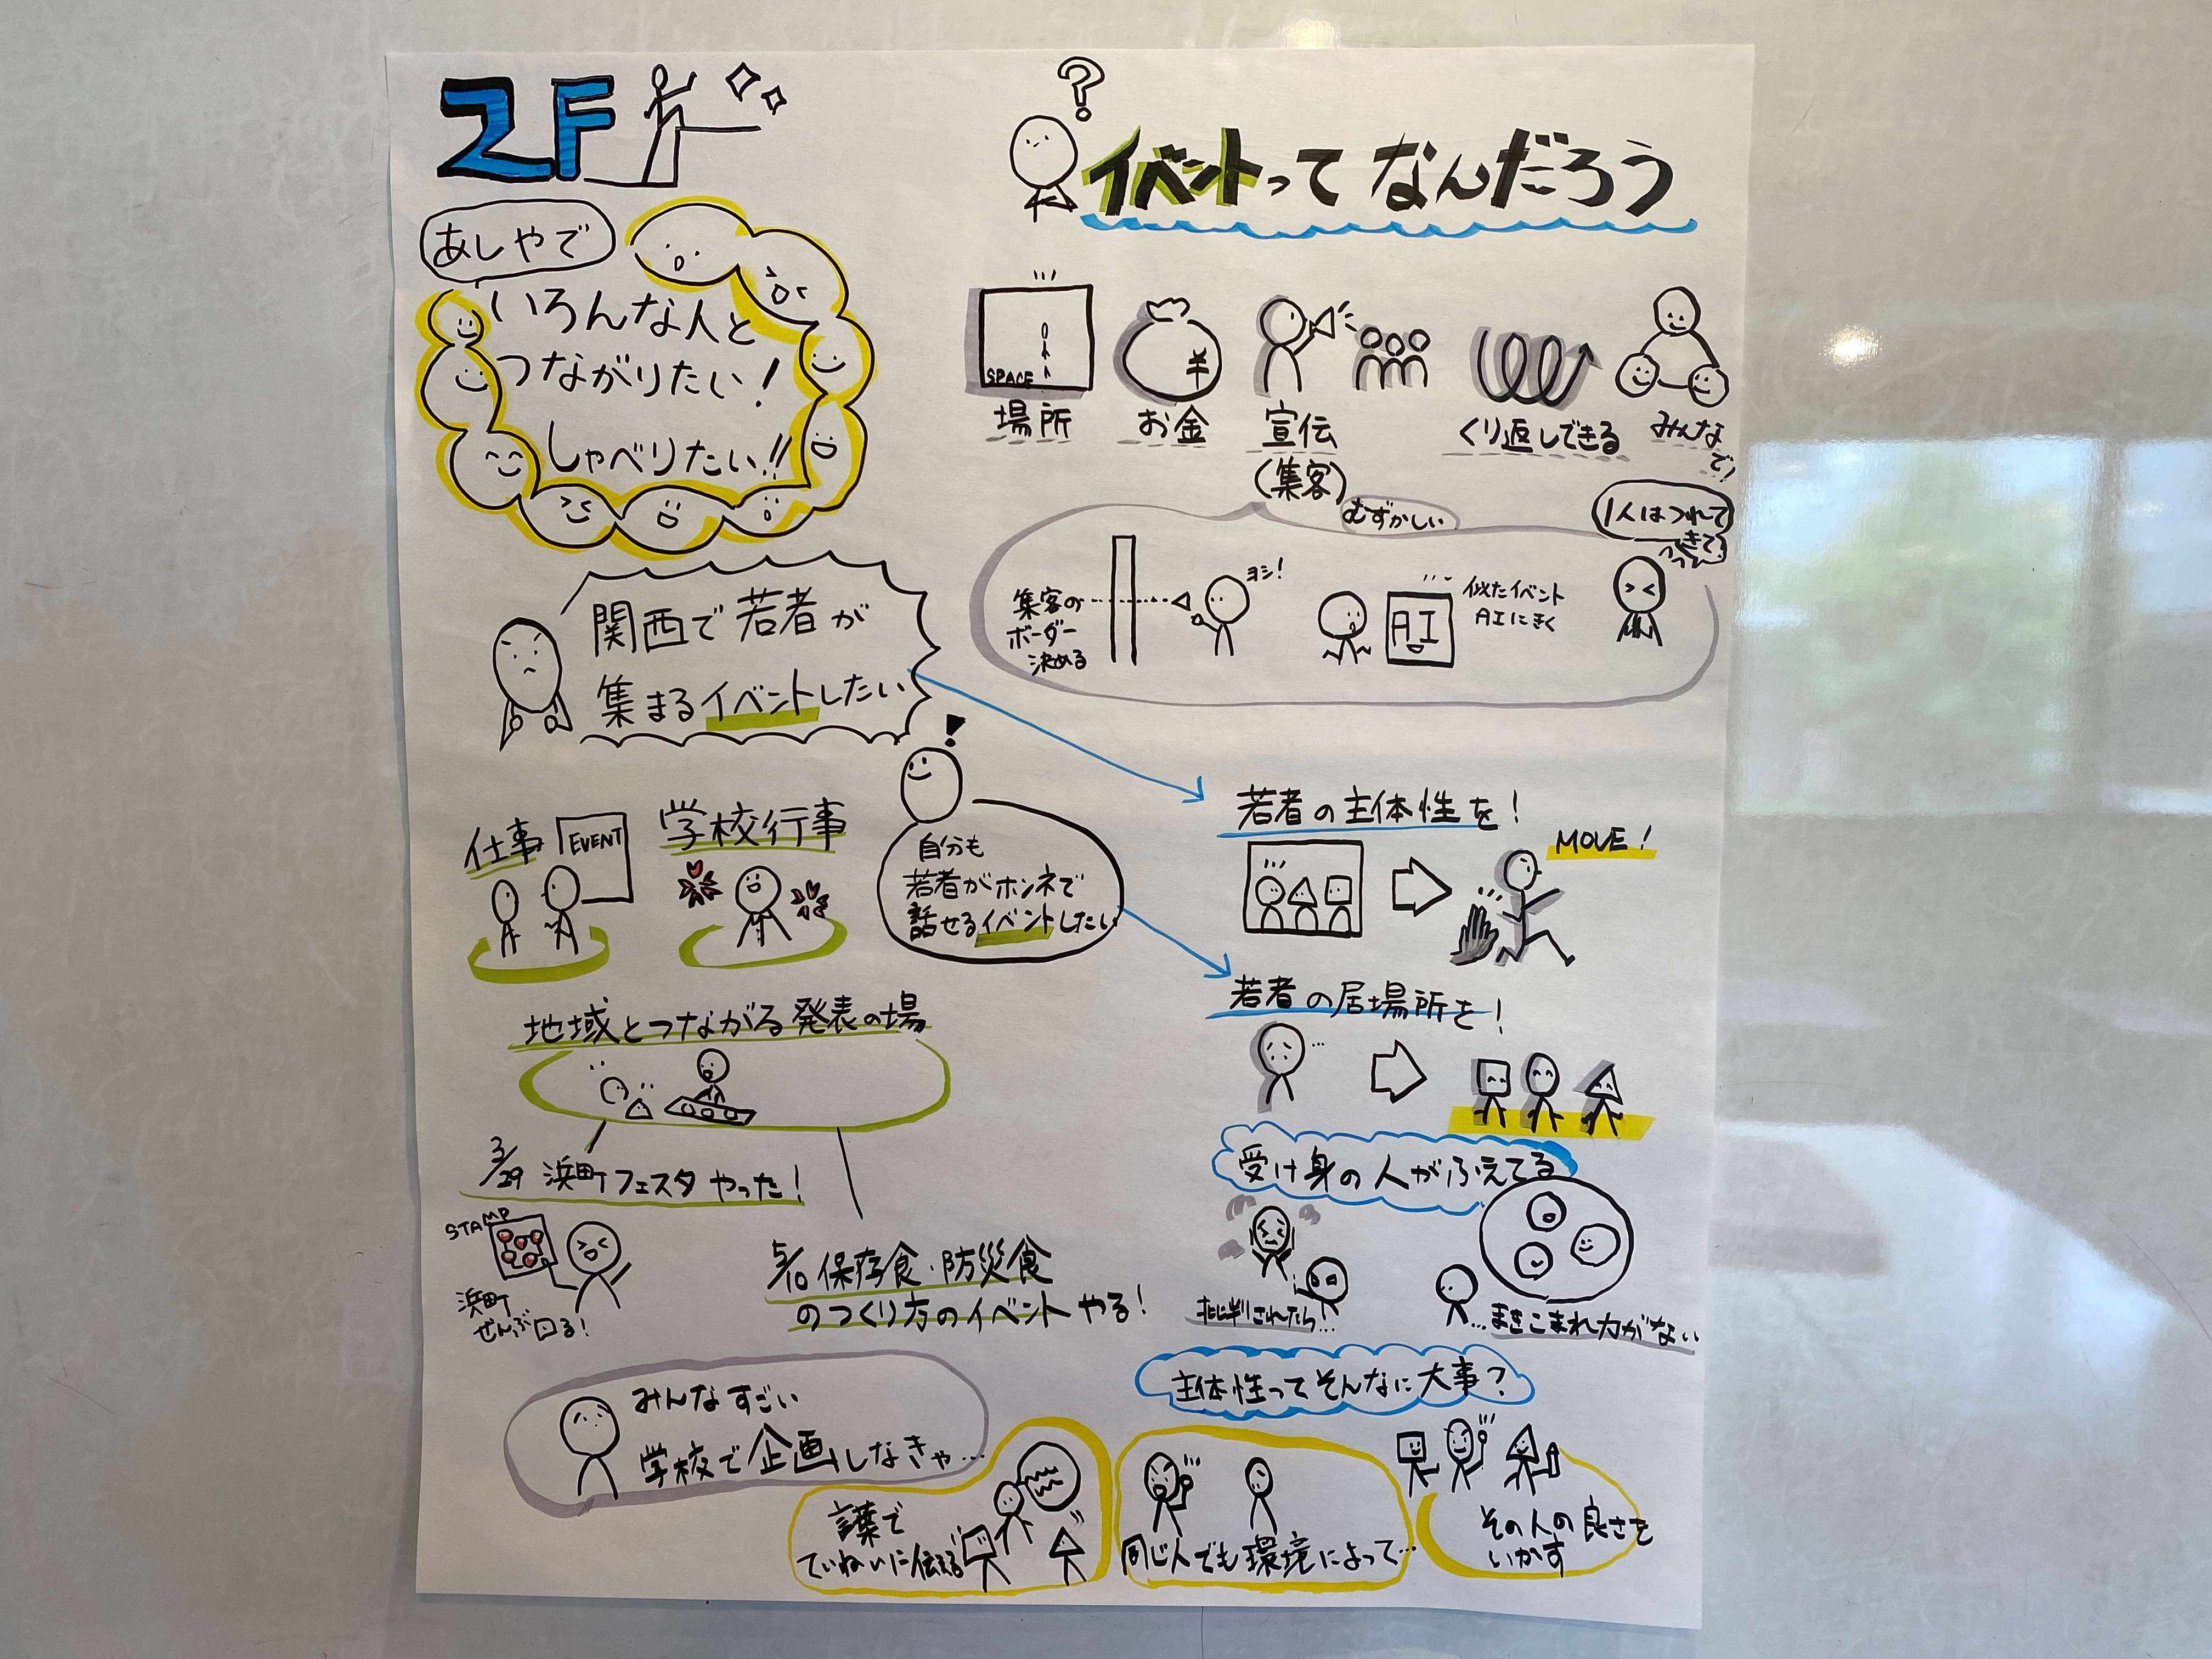 2F
あしやで
いろんな人と
つながりたい!
しゃべりたい!!
関西で若者が
集まるイベントしたい
仕事
EVENT
学校行事
自分も
若者がホンネで
話せるイベントしたい
地域とつながる発表の場
3/29 浜町フェスタやった!
STAMP
浜町
ぜんぶ回る!
5/10 保存食・防災食
のつくり方のイベントやる!
みんなすごい
学校で企画しなきゃ…
?
イベントってなんだろう
SPACE
場所
¥
お金
宣伝
(集客)
くり返しできる
みんな
で!
むずかしい
集客の
ボーダー
決める
ヨシ!
AI
似たイベント
AIにきく
1人はつれて
きて
若者の主体性を!
MOVE!
若者の居場所を!
受け身の人がふえてる
批判されたら…
…まきこまれ力がない
主体性ってそんなに大事?
言葉で
ていねいに伝える
同じ人でも環境によって…
その人の良さを
いかす